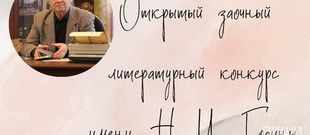 Открытый заочный
литературный конкурс
имени Н. И.